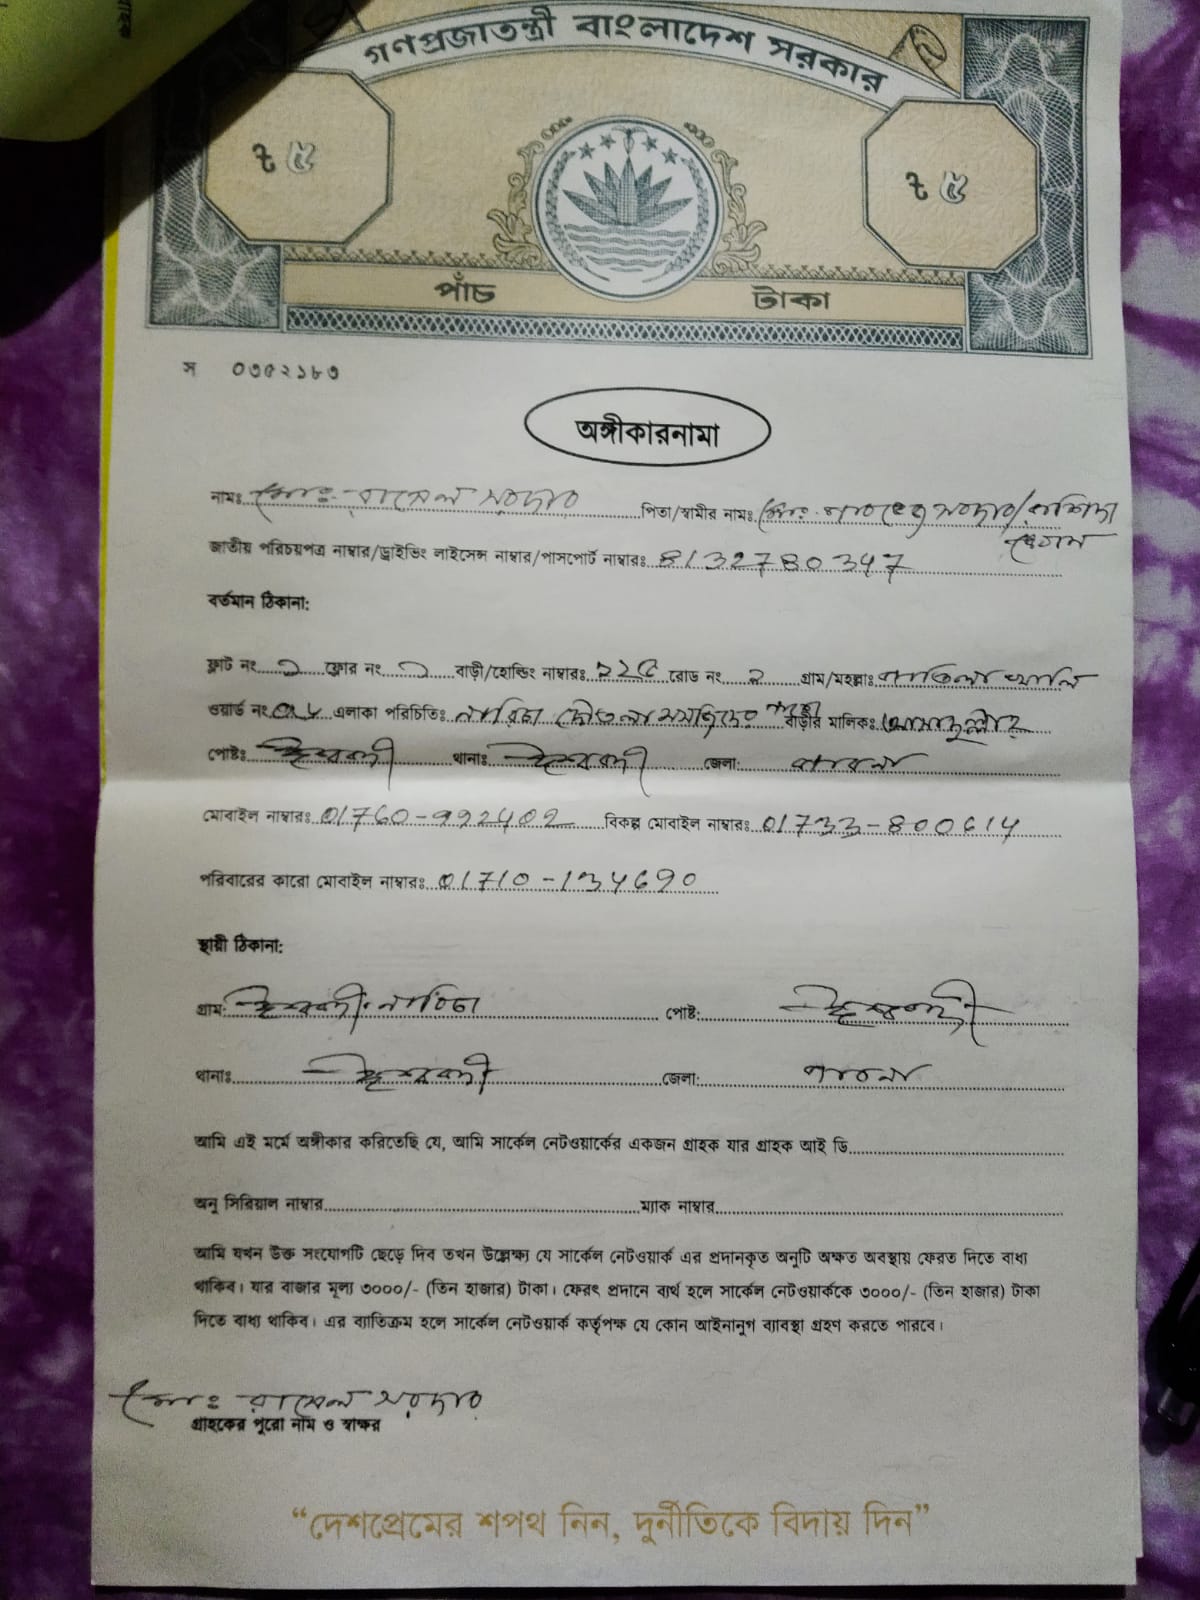 গণপ্রজাতন্ত্রী বাংলাদেশ সরকার
৳ ৫ ৳ ৫
পাঁচ টাকা
স ০৩৫২১৮৩
অঙ্গীকারনামা
নামঃ মোঃ রাসেল সরদার পিতা/স্বামীর নামঃ মোঃ সরদার/রাশিদা
বেগম
জাতীয় পরিচয়পত্র নাম্বার/ড্রাইভিং লাইসেন্স নাম্বার/পাসপোর্ট নাম্বারঃ 8132780347
বর্তমান ঠিকানা:
ফ্লাট নং ১ ফ্লোর নং ১ বাড়ী/হোল্ডিং নাম্বারঃ ২২৫ রোড নং ২ গ্রাম/মহল্লাঃ
ওয়ার্ড নং ০৮ এলাকা পরিচিতিঃ নারিচা মসজিদের পাশে বাড়ীর মালিকঃ
পোষ্টঃ ঈশ্বরদী থানাঃ ঈশ্বরদী জেলা: পাবনা
মোবাইল নাম্বারঃ 01760-992402 বিকল্প মোবাইল নাম্বারঃ 01733-800614
পরিবারের কারো মোবাইল নাম্বারঃ 01710-134690
স্থায়ী ঠিকানা:
গ্রাম: ঈশ্বরদী, নারিচা পোষ্ট: ঈশ্বরদী
থানাঃ ঈশ্বরদী জেলা: পাবনা
আমি এই মর্মে অঙ্গীকার করিতেছি যে, আমি সার্কেল নেটওয়ার্কের একজন গ্রাহক যার গ্রাহক আই ডি
অনু সিরিয়াল নাম্বার ম্যাক নাম্বার
আমি যখন উক্ত সংযোগটি ছেড়ে দিব তখন উল্লেক্ষ্য যে সার্কেল নেটওয়ার্ক এর প্রদানকৃত অনুটি অক্ষত অবস্থায় ফেরত দিতে বাধ্য
থাকিব। যার বাজার মূল্য ৩০০০/- (তিন হাজার) টাকা। ফেরৎ প্রদানে ব্যর্থ হলে সার্কেল নেটওয়ার্ককে ৩০০০/- (তিন হাজার) টাকা
দিতে বাধ্য থাকিব। এর ব্যাতিক্রম হলে সার্কেল নেটওয়ার্ক কর্তৃপক্ষ যে কোন আইনানুগ ব্যাবস্থা গ্রহণ করতে পারবে।
মোঃ রাসেল সরদার
গ্রাহকের পুরো নাম ও স্বাক্ষর
“দেশপ্রেমের শপথ নিন, দুর্নীতিকে বিদায় দিন”